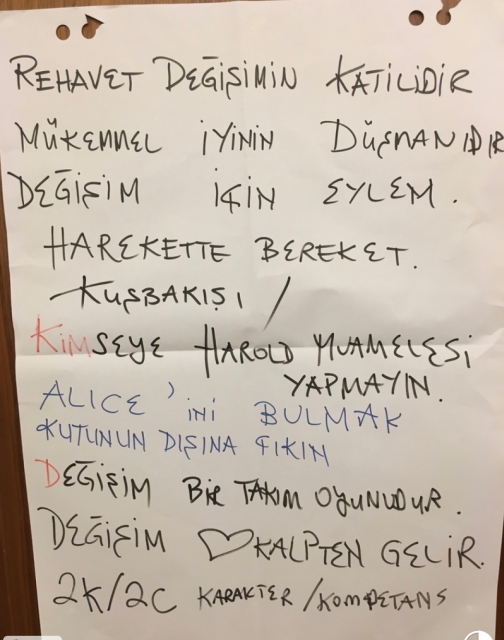 REHAVET DEĞİŞİMİN KATİLİDİR
MÜKEMMEL İYİNİN DÜŞMANIDIR
DEĞİŞİM İÇİN EYLEM.
HAREKETTE BEREKET.
KUŞBAKIŞI /
KİMSEYE HAROLD MUAMELESİ
YAPMAYIN.
ALICE'İNİ BULMAK
KUTUNUN DIŞINA ÇIKIN
DEĞİŞİM BİR TAKIM OYUNUDUR.
DEĞİŞİM ♡ KALPTEN GELİR.
2K/2C KARAKTER/KOMPETANS